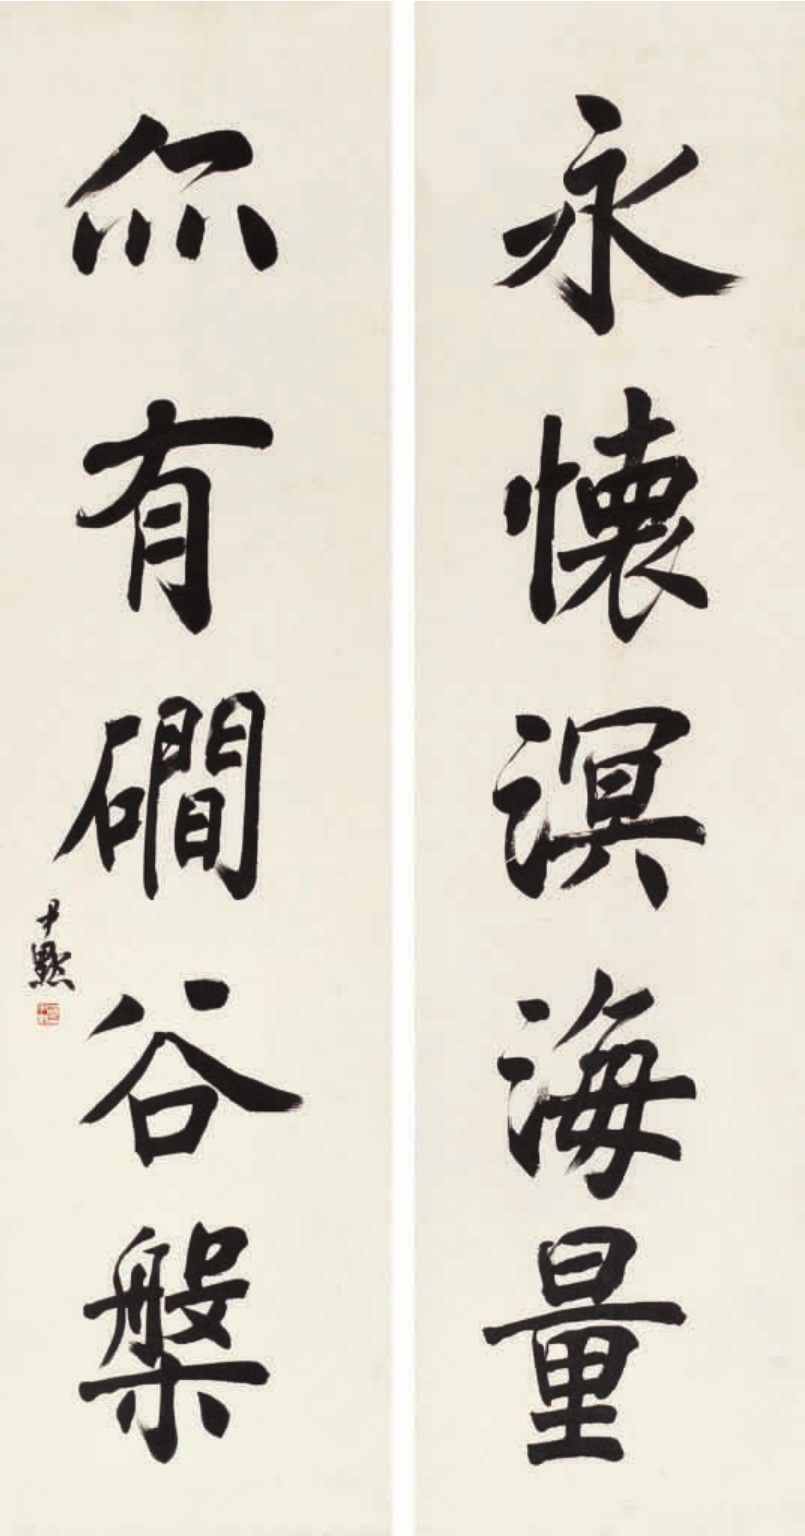 永懐溟海量
亦有磵谷槃
尹默